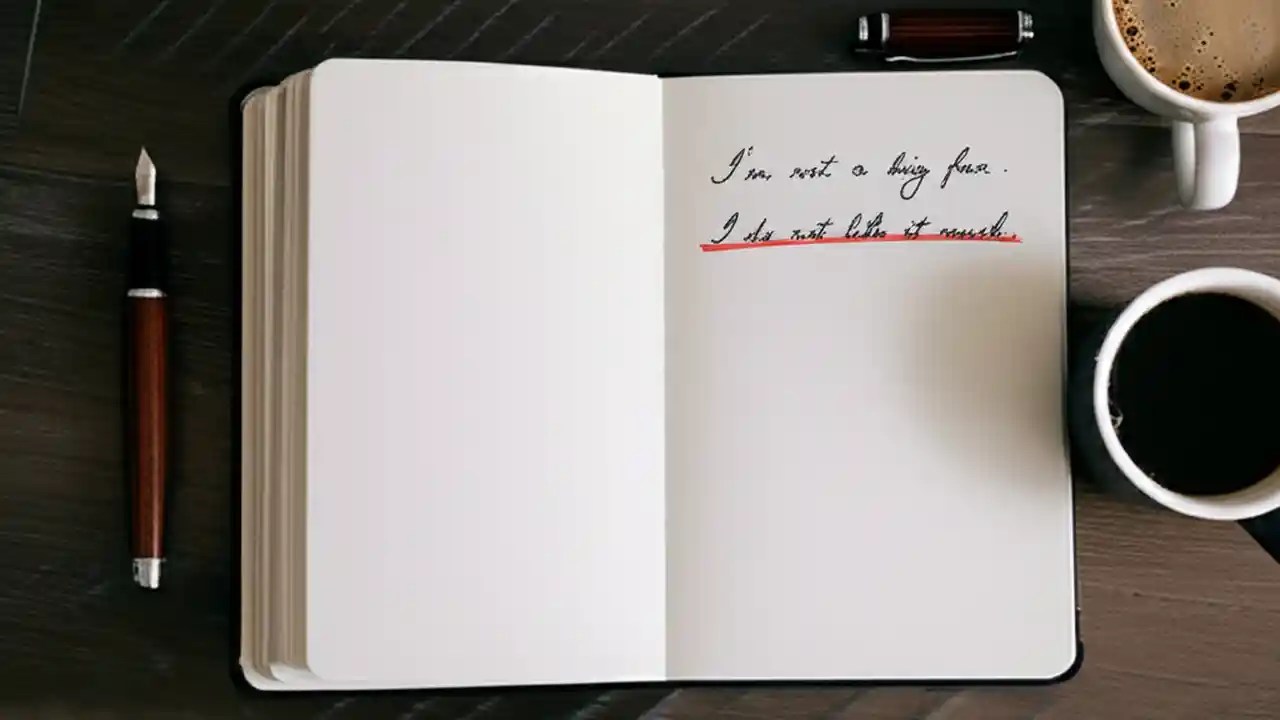 I'm not a big fan.
I do not like it much.